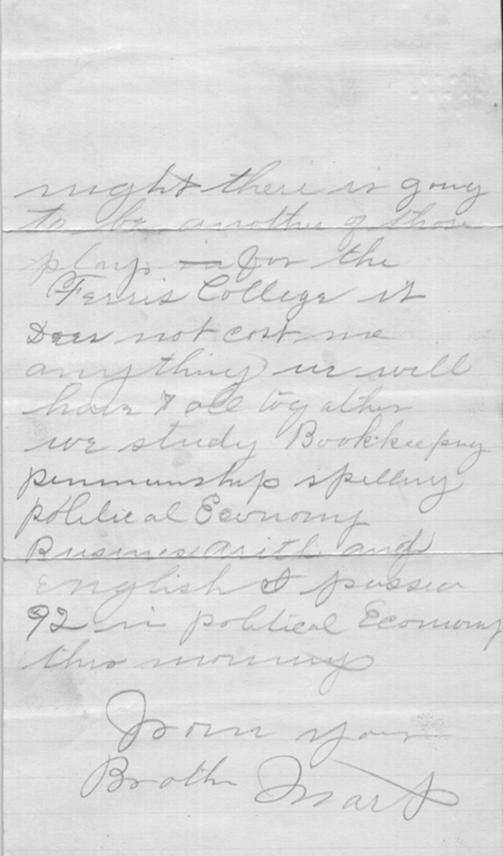 night there is going
to be another of those
plays in for the
Ferris College it
Does not cost me
anything we will
have 7 all together
we study Bookkeeping
penmunship spelling
political Economy
Business arith and
English I passed
92 in political Economy
this morning
From your
Brother Mart